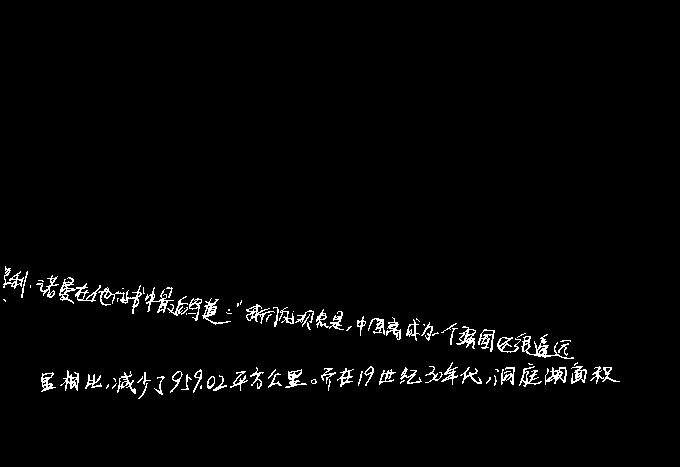 利·诺曼在他的书中最后写道："我们的观点是，中国离成为一个强国还很遥远
里相比，减少了959.02平方公里。而在19世纪30年代，洞庭湖面积